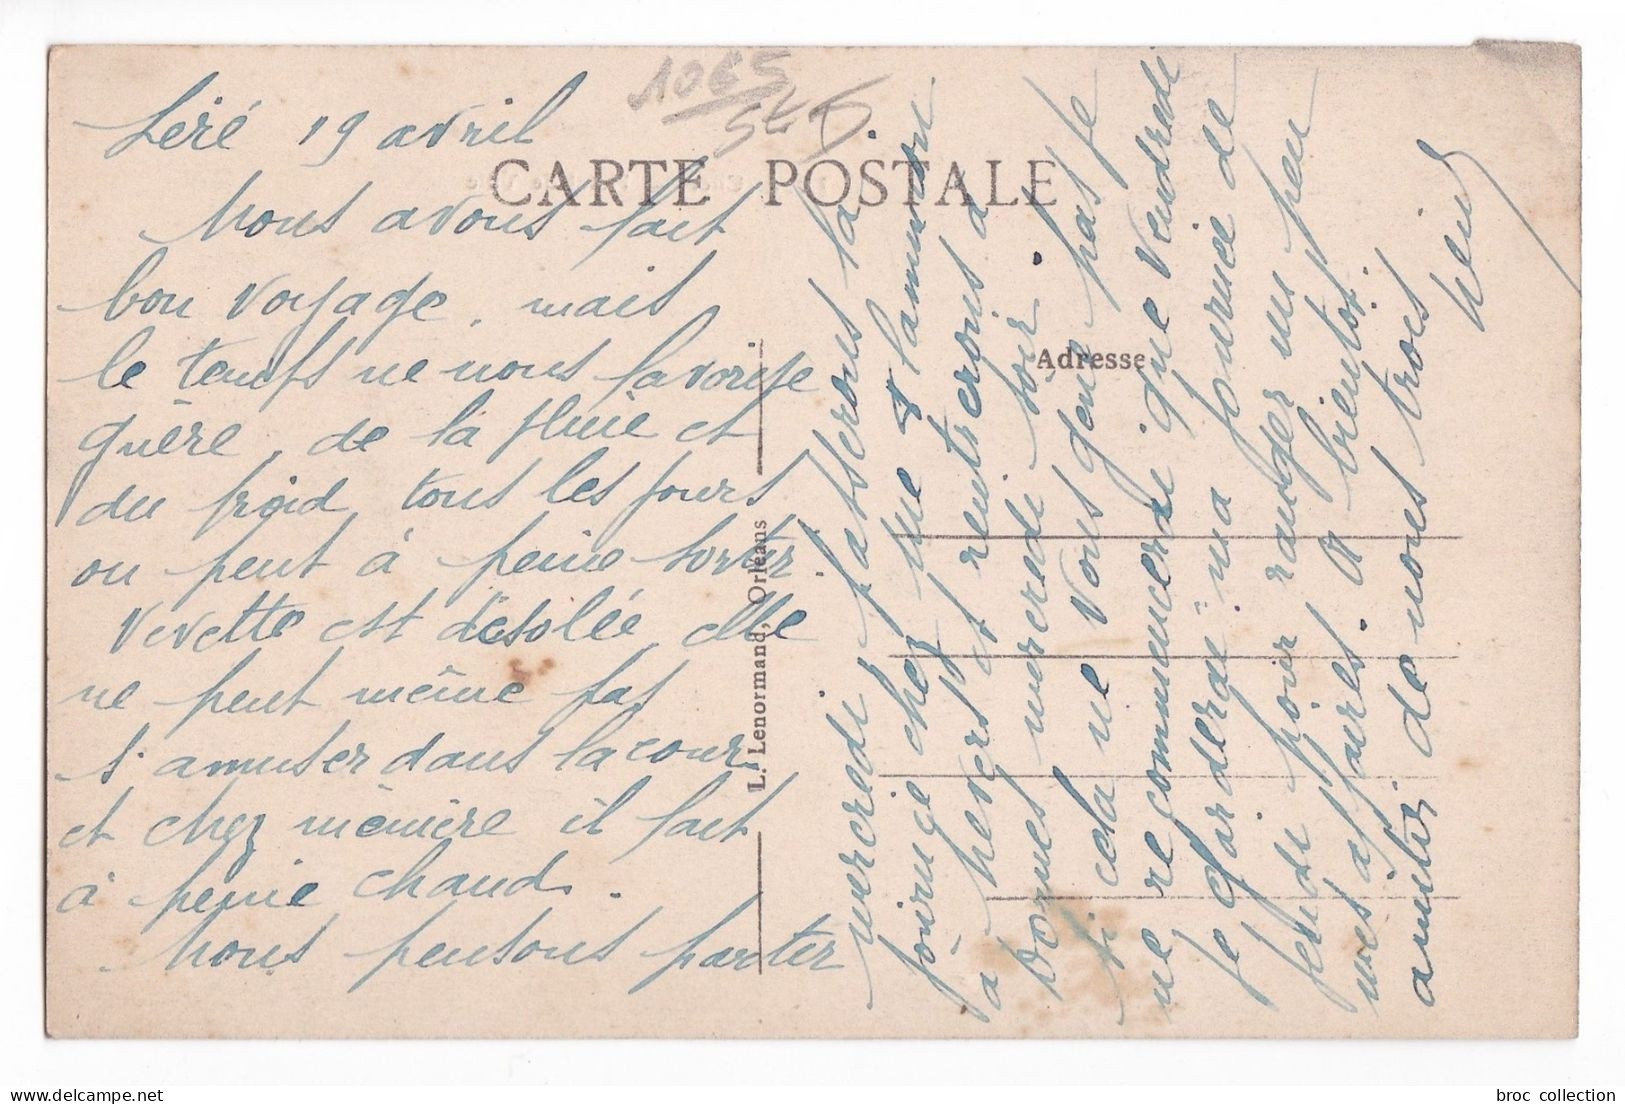 1065
545
CARTE POSTALE
Léré 19 avril
Nous avons fait
bon voyage, mais
le temps ne nous favorise
guère, de la pluie et
du froid tous les jours
on peut à peine sortir.
Vevette est désolée elle
ne peut même pas
s'amuser dans la cour
et chez mémère il fait
à peine chaud.
Nous pensons partir
mercredi passerons la
chez & l'ammoron
et rentrerons à
Vornes mercredi soir.
si cela ne vous gene pas je
ne recommencerai que vendredi
je garderai ma journée de
jeudi pour ranger un peu
mes affaires. A bientot
amitiés de nous trois
Adresse
L. Lenormand, Orléans
broc collection